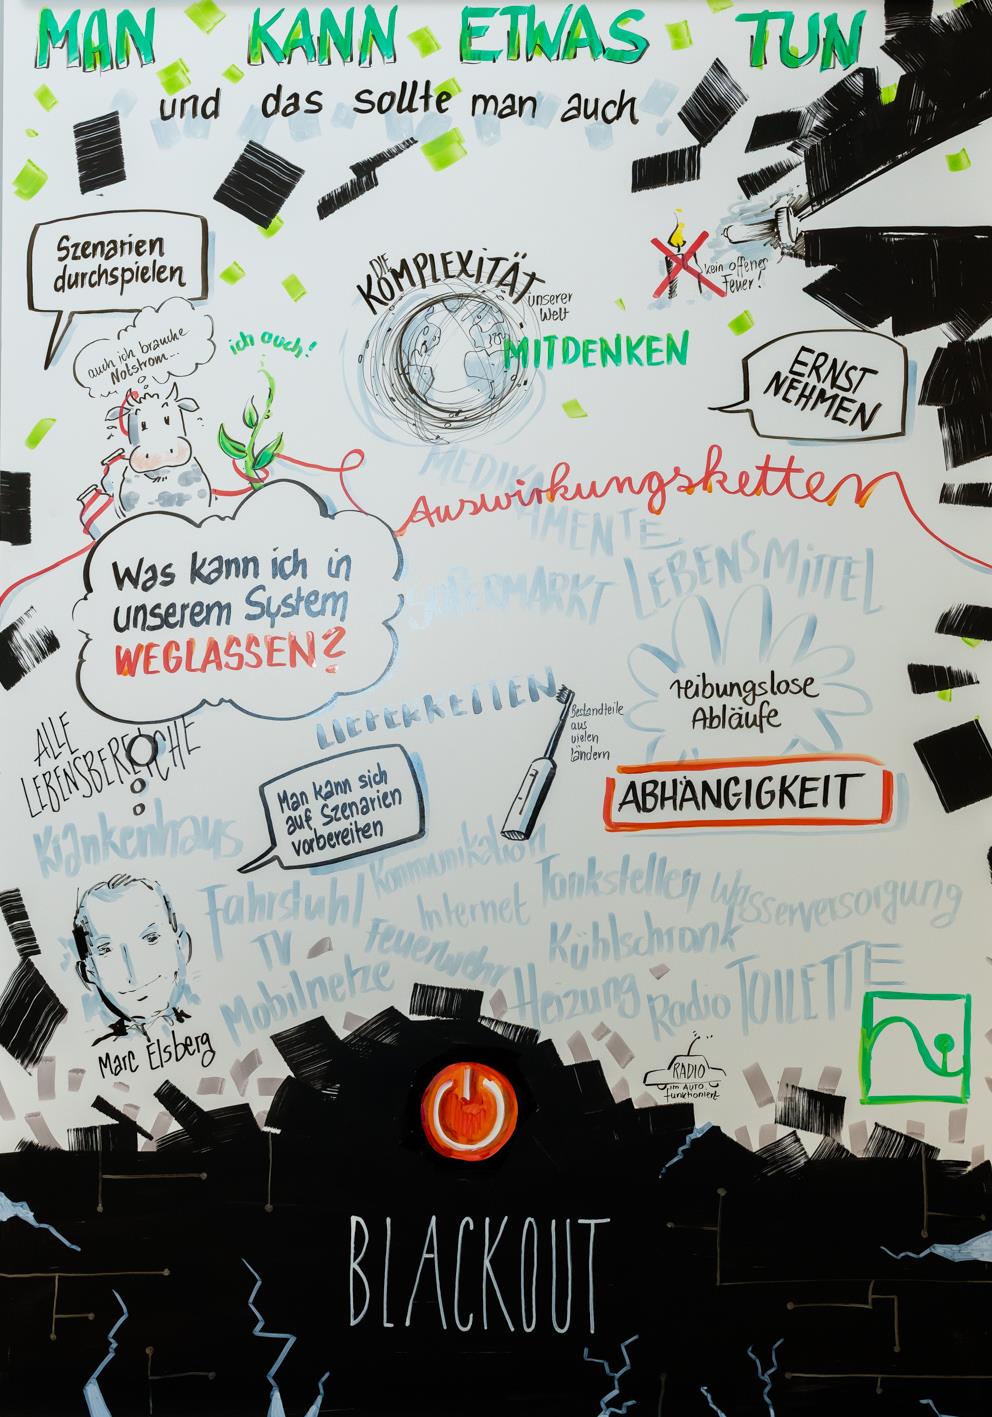 MAN KANN ETWAS TUN
und das sollte man auch
Szenarien
durchspielen
DIE
KOMPLEXITÄT
unserer
Welt
kein offenes
Feuer!
auch ich brauche
Notstrom...
ich auch!
MITDENKEN
ERNST
NEHMEN
MEDIKA
MENTE
Auswirkungsketten
SUPERMARKT
LEBENSMITTEL
Was kann ich in
unserem System
WEGLASSEN?
LIEFERKETTEN
Bestandteile
aus
vielen
Ländern
reibungslose
Abläufe
ABHÄNGIGKEIT
ALLE
LEBENSBEREICHE
Man kann sich
auf Szenarien
vorbereiten
Krankenhaus
Kommunikation
Fahrstuhl
Internet
Tankstellen
Wasserversorgung
TV
Feuerwehr
Kühlschrank
Mobilnetze
Heizung
Radio
TOILETTE
Marc Elsberg
RADIO
im Auto
funktioniert
BLACKOUT